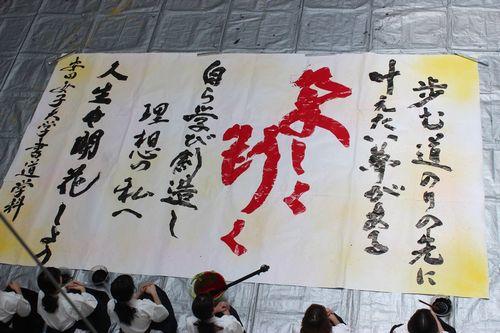 歩む道のりの先に
叶えたい夢がある
しく
く
自ら学び創造し
理想の私へ
人生 花しよう
安田女子大学書道学科